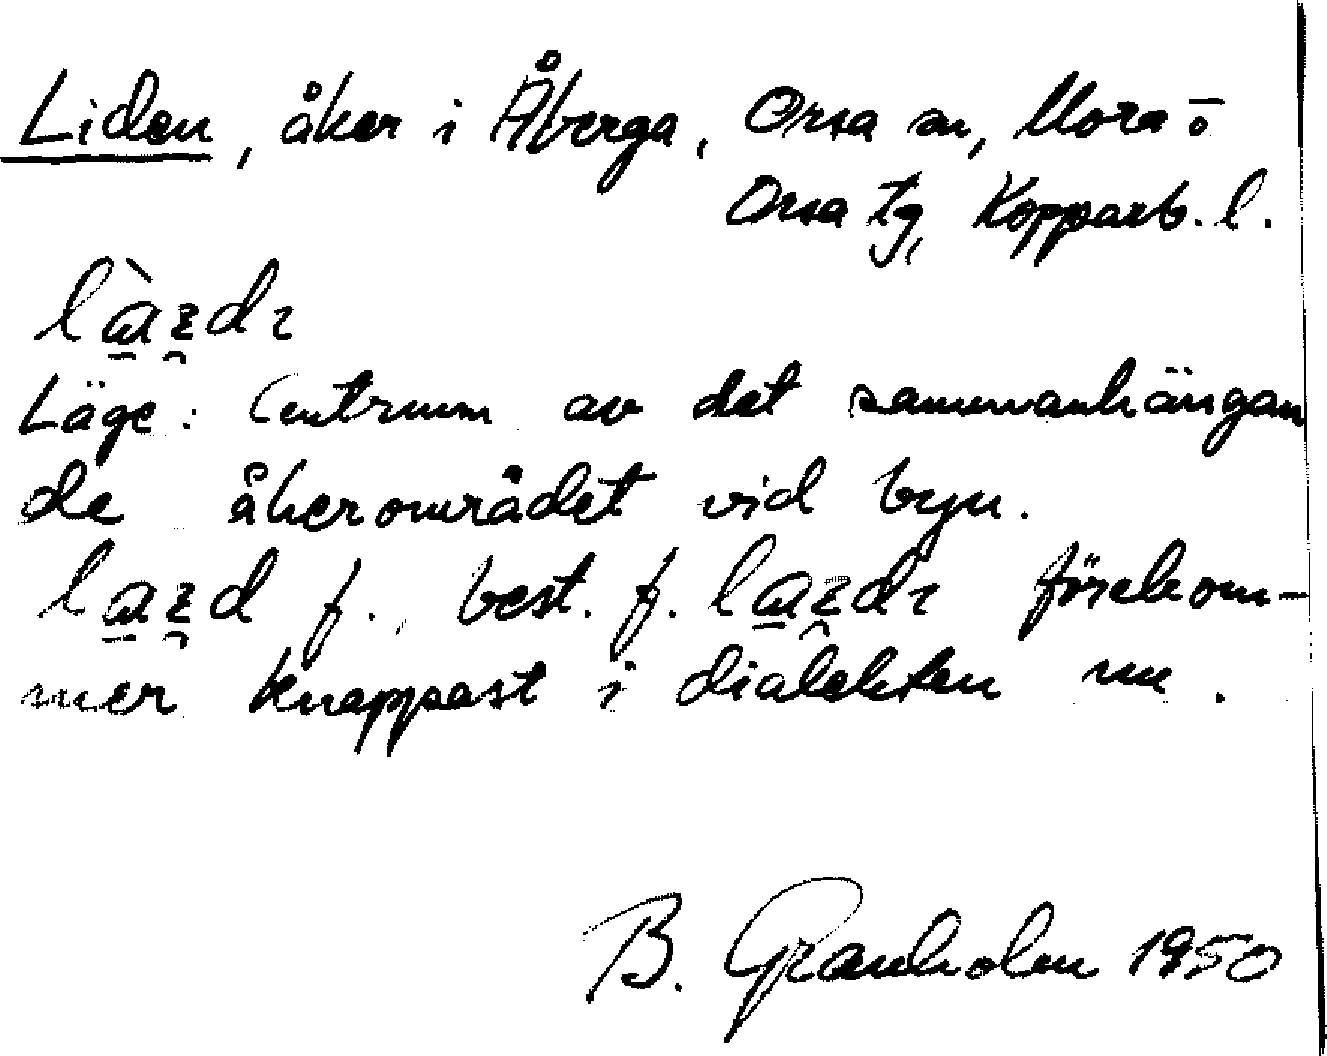 Liden, åker i Åberga, Orsa sn, Mora o
Orsa tg, Kopparb. l.
Läge: Centrum av det sammanhängan
de åkerområdet vid byn.
f. best. f. förekom-
mer knappast i dialekten nu.
B. Granholm 1950